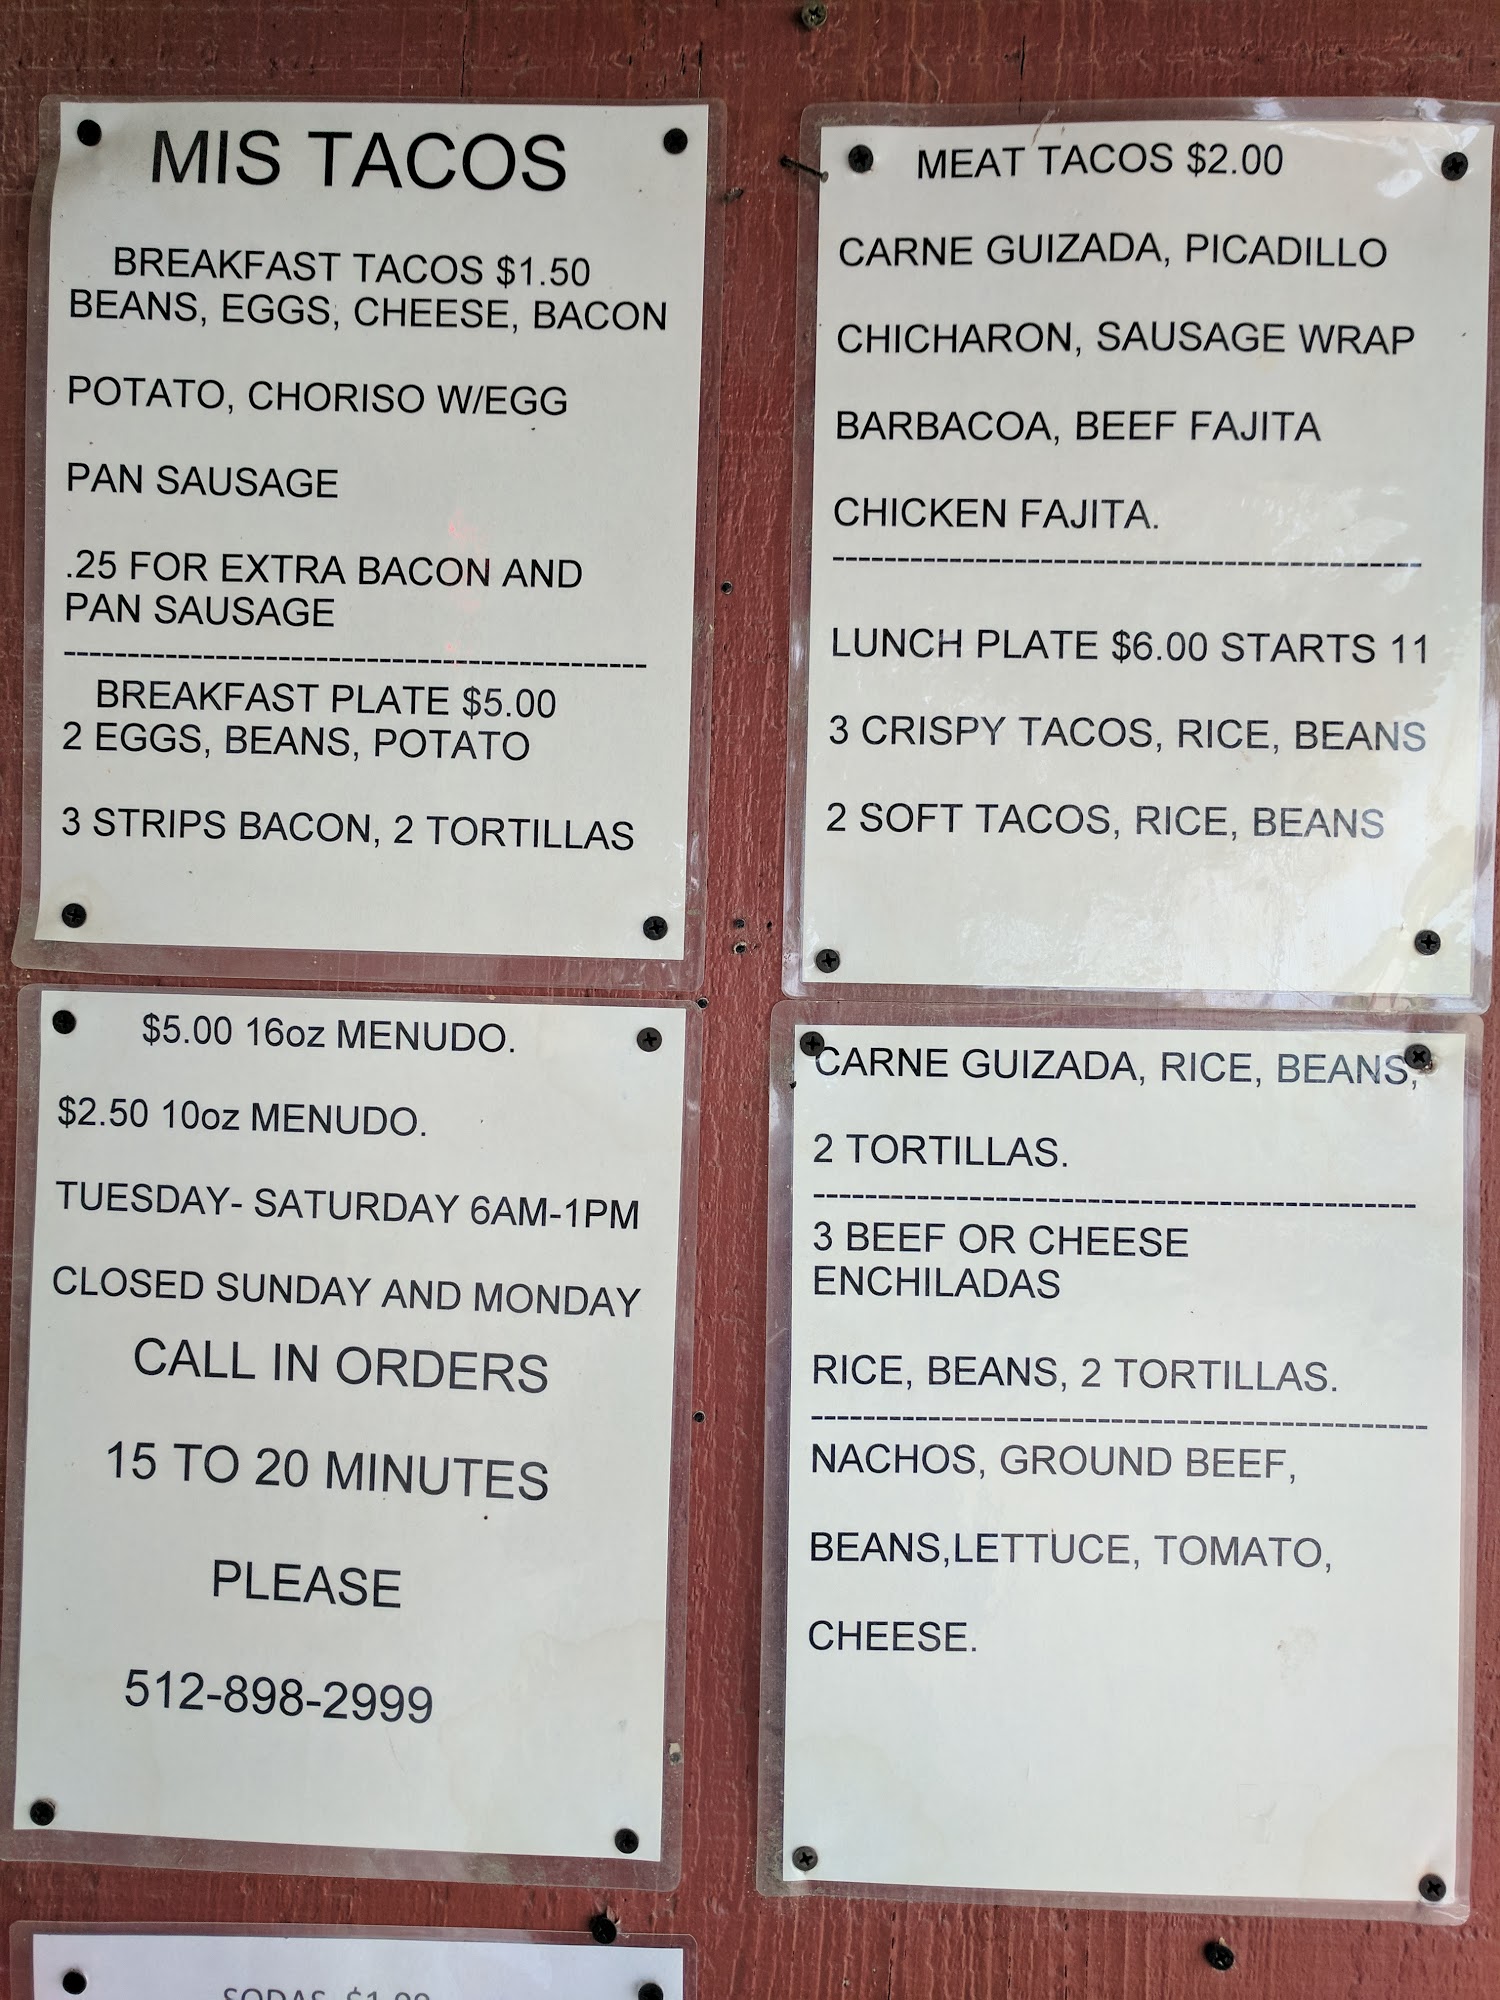 MIS TACOS
BREAKFAST TACOS $1.50
BEANS, EGGS, CHEESE, BACON
POTATO, CHORISO W/EGG
PAN SAUSAGE
.25 FOR EXTRA BACON AND
PAN SAUSAGE
---------------------------------------------
BREAKFAST PLATE $5.00
2 EGGS, BEANS, POTATO
3 STRIPS BACON, 2 TORTILLAS
MEAT TACOS $2.00
CARNE GUIZADA, PICADILLO
CHICHARON, SAUSAGE WRAP
BARBACOA, BEEF FAJITA
CHICKEN FAJITA.
---------------------------------------------
LUNCH PLATE $6.00 STARTS 11
3 CRISPY TACOS, RICE, BEANS
2 SOFT TACOS, RICE, BEANS
$5.00 16oz MENUDO.
$2.50 10oz MENUDO.
TUESDAY- SATURDAY 6AM-1PM
CLOSED SUNDAY AND MONDAY
CALL IN ORDERS
15 TO 20 MINUTES
PLEASE
512-898-2999
CARNE GUIZADA, RICE, BEANS,
2 TORTILLAS.
---------------------------------------------
3 BEEF OR CHEESE
ENCHILADAS
RICE, BEANS, 2 TORTILLAS.
---------------------------------------------
NACHOS, GROUND BEEF,
BEANS,LETTUCE, TOMATO,
CHEESE.
SODAS $1.00